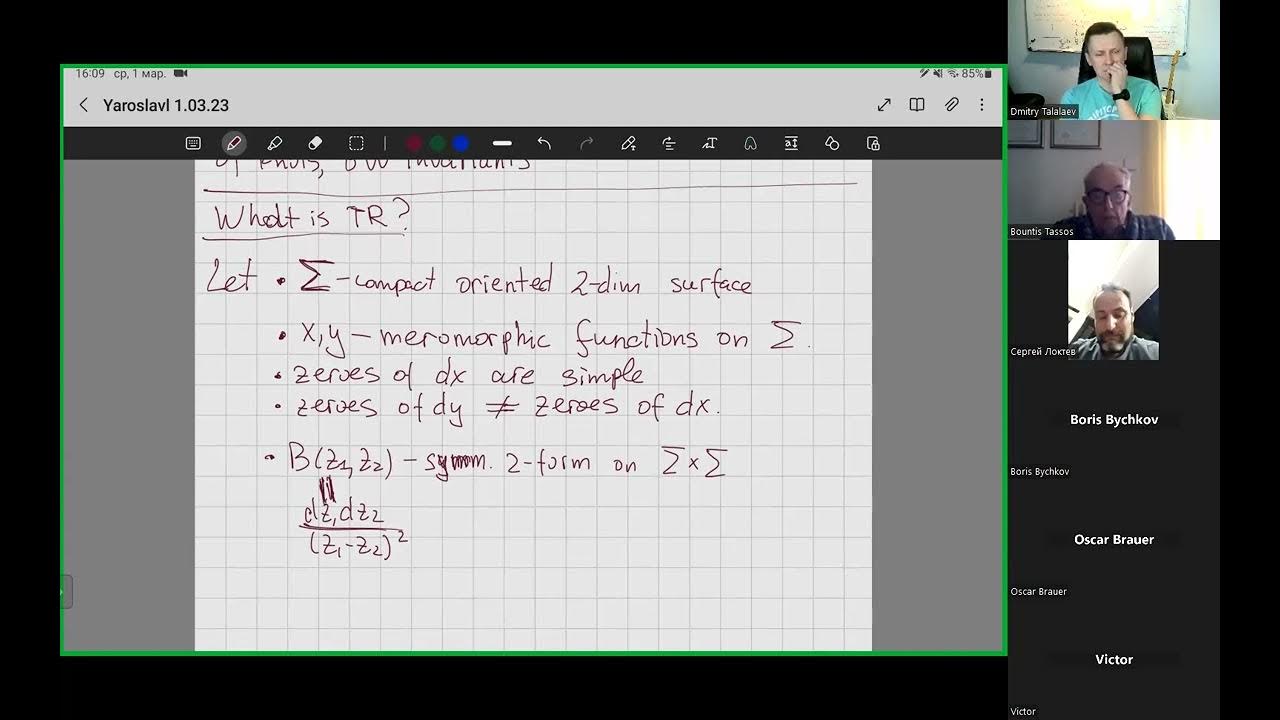 16:09 ср, 1 мар.
85%
Yaroslavl 1.03.23
of knots, GW invariants
What is TR?
Let • Σ - compact oriented 2-dim surface
• x, y - meromorphic functions on Σ.
• zeroes of dx are simple
• zeroes of dy ≠ zeroes of dx.
• B(z₁, z₂) - symm. 2-form on Σ×Σ
||
dz₁dz₂
(z₁-z₂)²
Dmitry Talalaev
Bountis Tassos
Сергей Локтев
Boris Bychkov
Boris Bychkov
Oscar Brauer
Oscar Brauer
Victor
Victor